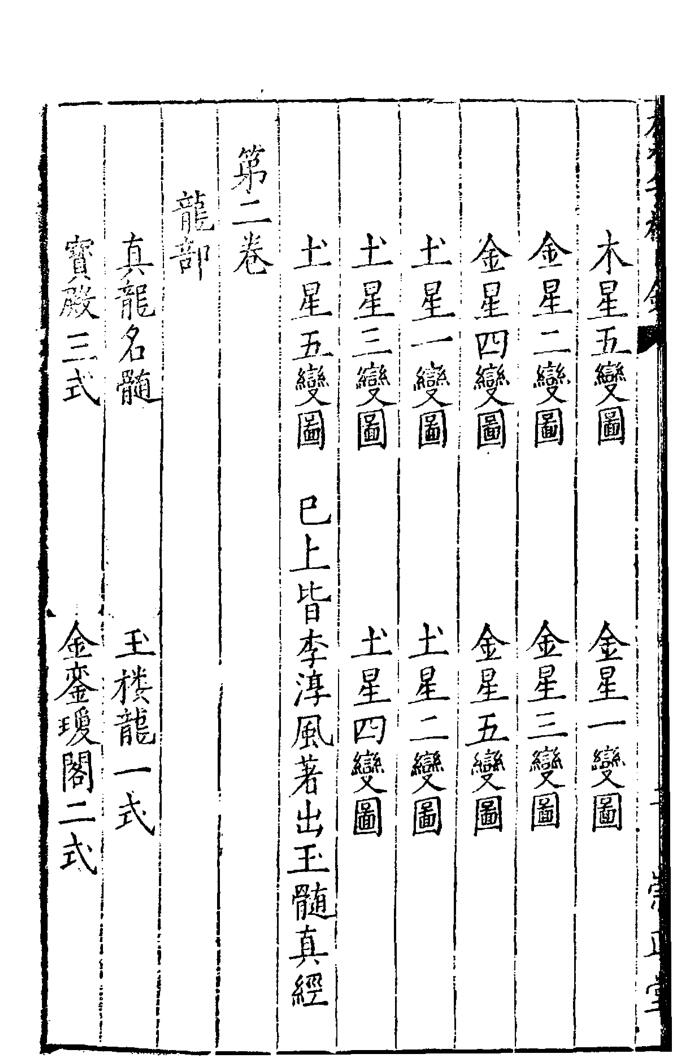 木星五變圖 金星一變圖
金星二變圖 金星三變圖
金星四變圖 金星五變圖
土星一變圖 土星二變圖
土星三變圖 土星四變圖
土星五變圖 已上皆李淳風著出玉髓真經
第二卷
龍部
真龍名髓 玉楼龍一式
寳殿三式 金鑾瓊閣二式